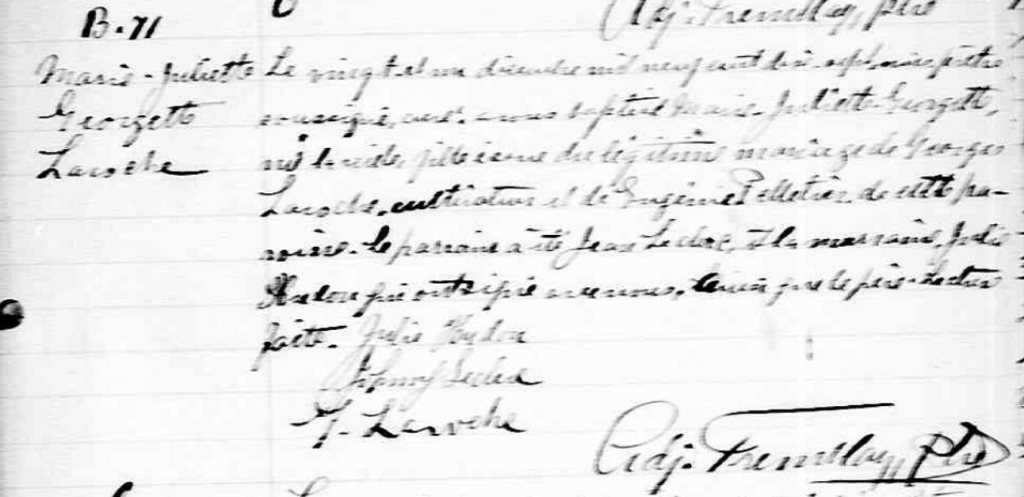 Adj. Tremblay, ptre
B.71
Marie-Juliette
Georgette
Laroche
Le vingt et un décembre mil neuf cent dix-sept, nous prêtre
soussigné, curé, avons baptisé Marie-Juliette-Georgette,
née la veille, fille issue du légitime mariage de Georges
Laroche, cultivateur et de Eugénie Pelletier, de cette pa-
roisse. Le parrain a été Jean Leclerc, et la marraine, Julie
Hudon qui ont signé avec nous, ainsi que le père. Lecture
faite. Julie Hudon
Leclerc
G. Laroche
Adj. Tremblay, ptre